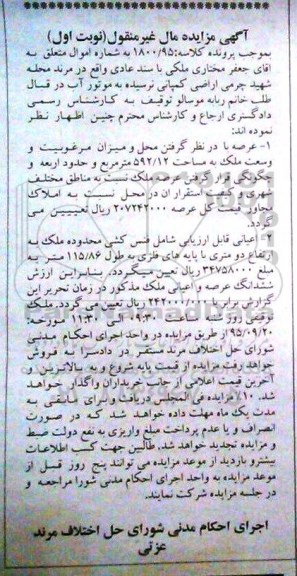 آگهی مزایده مال غیرمنقول(نوبت اول)
بموجب پرونده کلاسه:۱۸۰۰/۹۵ به شماره اموال متعلق به
آقای جعفر مختاری ملکی با سند عادی واقع در مرند محله
شهید چرمی اراضی کمپانی نرسیده به موتور آب در قبال
طلب خانم ربابه موسالو توقیف به کارشناس رسمی
دادگستری ارجاع و کارشناس محترم چنین اظهار نظر
نموده اند:
۱- عرصه با در نظر گرفتن محل و میزان مرغوبیت و
وسعت ملک به مساحت ۵۹۲/۱۲ مترمربع و حدود اربعه و
چگونگی قرار گرفتن عرصه ملک نسبت به مناطق مختلف
شهری و کیفیت استقرار آن در محل نسبت به املاک
مجاور قیمت کل عرصه ۲۰۷۲۴۲۰۰۰ ریال تعیین می
گردد.
۲- اعیانی قابل ارزیابی شامل فنس کشی محدوده ملک به
ارتفاع دو متری با پایه های فلزی به طول ۱۱۵/۸۶ متر به
مبلغ ۳۴۷۵۸۰۰۰ ریال تعیین میگردد. بنابراین ارزش
ششدانگ عرصه و اعیانی ملک مذکور در زمان تحریر این
گزارش برابر با ۲۴۲۰۰۰/۰۰۰ ریال تعیین می گردد. ملک
توقیفی روز ۰۹:۳۰ الی ۱۱:۳۰ مورخه:
۹۵/۰۹/۲۰ از طریق مزایده در واحد اجرای احکام مدنی
شورای حل اختلاف مرند مستقر در دادسرا به فروش
خواهد رفت مزایده از قیمت پایه شروع و به بالاترین و
آخرین قیمت اعلامی از جانب خریداران واگذار خواهد
شد. ۱۰٪ مزایده فی المجلس دریافت و برای مابقی به
مدت یک ماه مهلت داده خواهد شد که در صورت
انصراف و یا عدم پرداخت مبلغ واریزی به نفع دولت ضبط
و مزایده تجدید خواهد شد. طالبین جهت کسب اطلاعات
بیشتر و بازدید از موعد مزایده می توانند پنج روز قبل از
موعد مزایده به واحد اجرای احکام مدنی شورا مراجعه و
در جلسه مزایده شرکت نمایند.
اجرای احکام مدنی شورای حل اختلاف مرند
عزتی